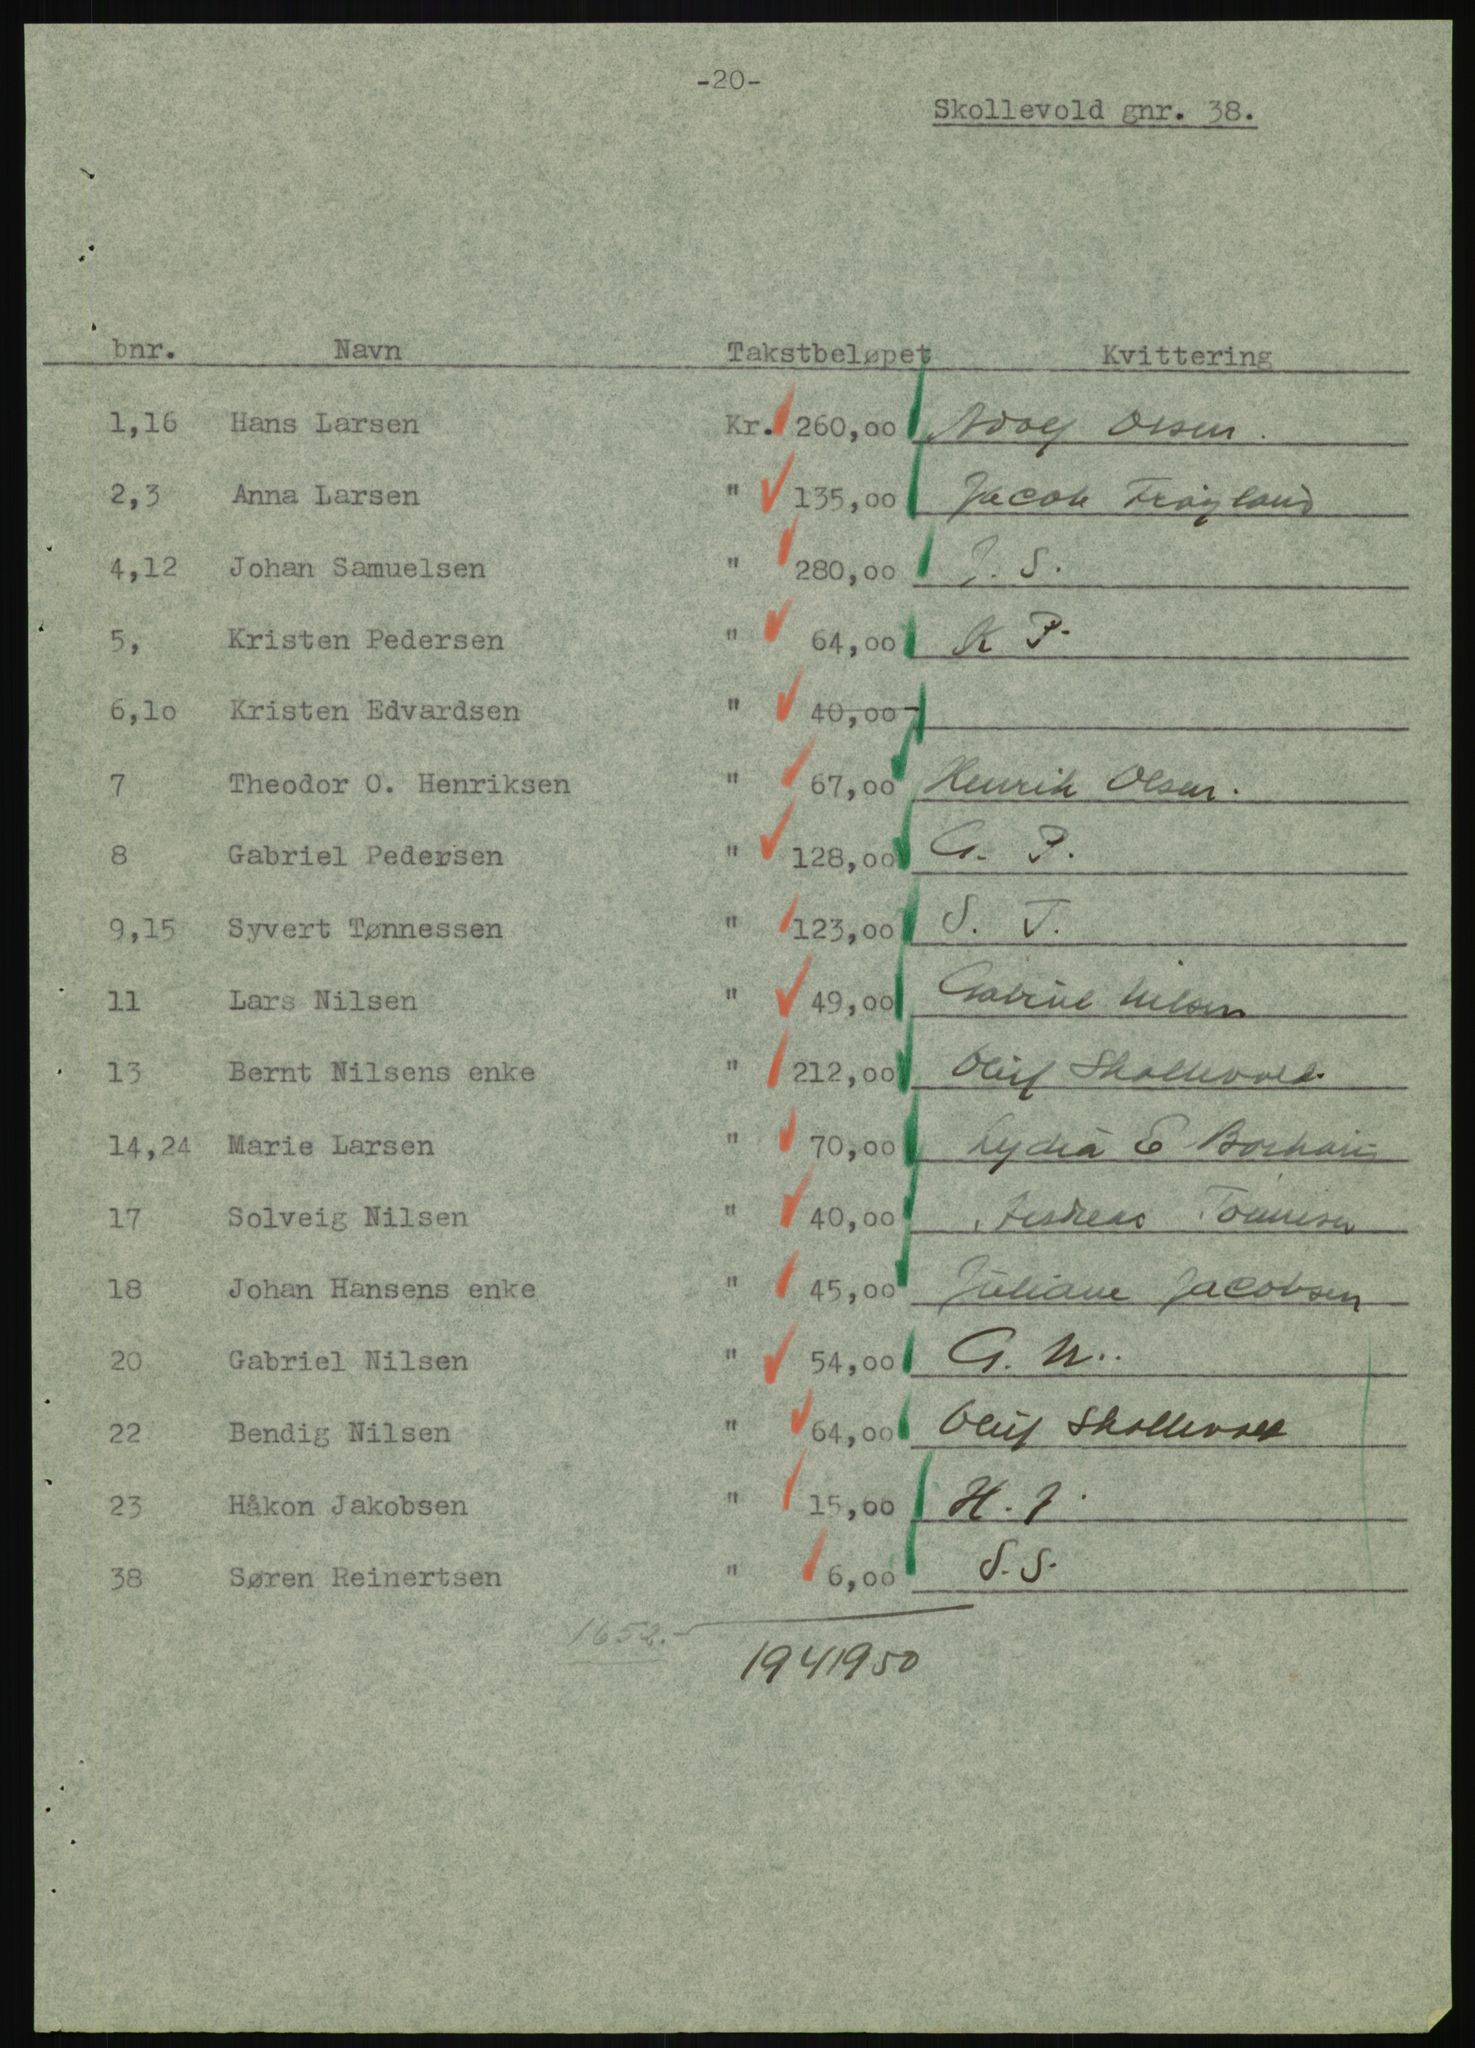 -20-
Skollevold gnr. 38.
bnr. Navn Takstbeløpet Kvittering
1,16 Hans Larsen Kr. 260,00 Adolf Olsen.
2,3 Anna Larsen " 135,00 Jacob Frøyland
4,12 Johan Samuelsen " 280,00 J. S.
5, Kristen Pedersen " 64,00 K P.
6,10 Kristen Edvardsen " 40,00
7 Theodor O. Henriksen " 67,00 Henrik Olsen.
8 Gabriel Pedersen " 128,00 G. P.
9,15 Syvert Tønnessen " 123,00 S. T.
11 Lars Nilsen " 49,00 Gabriel Nilsen
13 Bernt Nilsens enke " 212,00 Oluf Skollevold.
14,24 Marie Larsen " 70,00 Lydia E
17 Solveig Nilsen " 40,00 Andreas Tønnesen
18 Johan Hansens enke " 45,00 Juliane Jacobsen
20 Gabriel Nilsen " 54,00 G. N..
22 Bendig Nilsen " 64,00 Oluf Skollevold
23 Håkon Jakobsen " 15,00 H. J.
38 Søren Reinertsen " 6,00 S. S.
1652.-
1941950